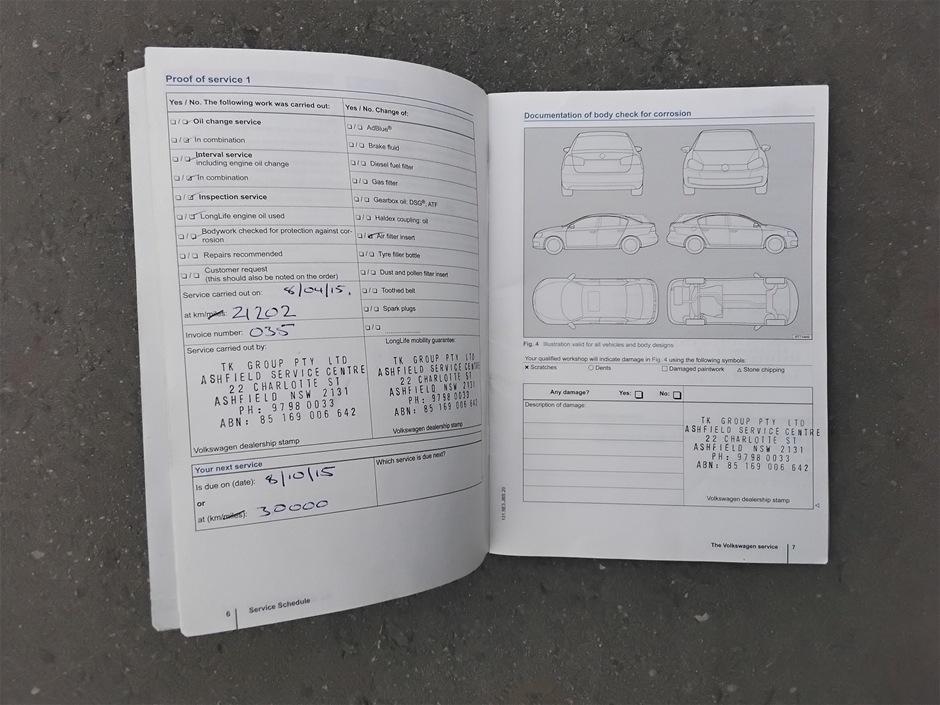 Proof of service 1
Yes / No. The following work was carried out:
❏ / ❏ Oil change service
❏ / ❏ In combination
❏ / ❏ Interval service
including engine oil change
❏ / ❏ In combination
❏ / ❏ Inspection service
❏ / ❏ LongLife engine oil used
❏ / ❏ Bodywork checked for protection against cor-
rosion
❏ / ❏ Repairs recommended
❏ / ❏ Customer request
(this should also be noted on the order)
Service carried out on: 8/04/15.
at km/miles: 21202
Invoice number: 035
Service carried out by:
TK GROUP PTY LTD
ASHFIELD SERVICE CENTRE
22 CHARLOTTE ST
ASHFIELD NSW 2131
PH: 9798 0033
ABN: 85 169 006 642
Volkswagen dealership stamp
Yes / No. Change of:
❏ / ❏ AdBlue®
❏ / ❏ Brake fluid
❏ / ❏ Diesel fuel filter
❏ / ❏ Gas filter
❏ / ❏ Gearbox oil: DSG®, ATF
❏ / ❏ Haldex coupling: oil
❏ / ❏ Air filter insert
❏ / ❏ Tyre filler bottle
❏ / ❏ Dust and pollen filter insert
❏ / ❏ Toothed belt
❏ / ❏ Spark plugs
❏ / ❏
LongLife mobility guarantee:
TK GROUP PTY LTD
ASHFIELD SERVICE CENTRE
22 CHARLOTTE ST
ASHFIELD NSW 2131
PH: 9798 0033
ABN: 85 169 006 642
Volkswagen dealership stamp
Your next service
Is due on (date): 8/10/15
or
at (km/miles): 30000
Which service is due next?
6 Service Schedule
Documentation of body check for corrosion
Fig. 4 Illustration valid for all vehicles and body designs
Your qualified workshop will indicate damage in Fig. 4 using the following symbols:
✖ Scratches ○ Dents ☐ Damaged paintwork △ Stone chipping
Any damage? Yes: ❏ No: ❏
Description of damage:
TK GROUP PTY LTD
ASHFIELD SERVICE CENTRE
22 CHARLOTTE ST
ASHFIELD NSW 2131
PH: 9798 0033
ABN: 85 169 006 642
Volkswagen dealership stamp
The Volkswagen service 7